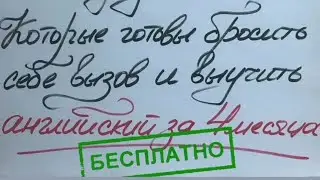 Которые готовы бросить
себе вызов и выучить
английский за 4 месяца
БЕСПЛАТНО